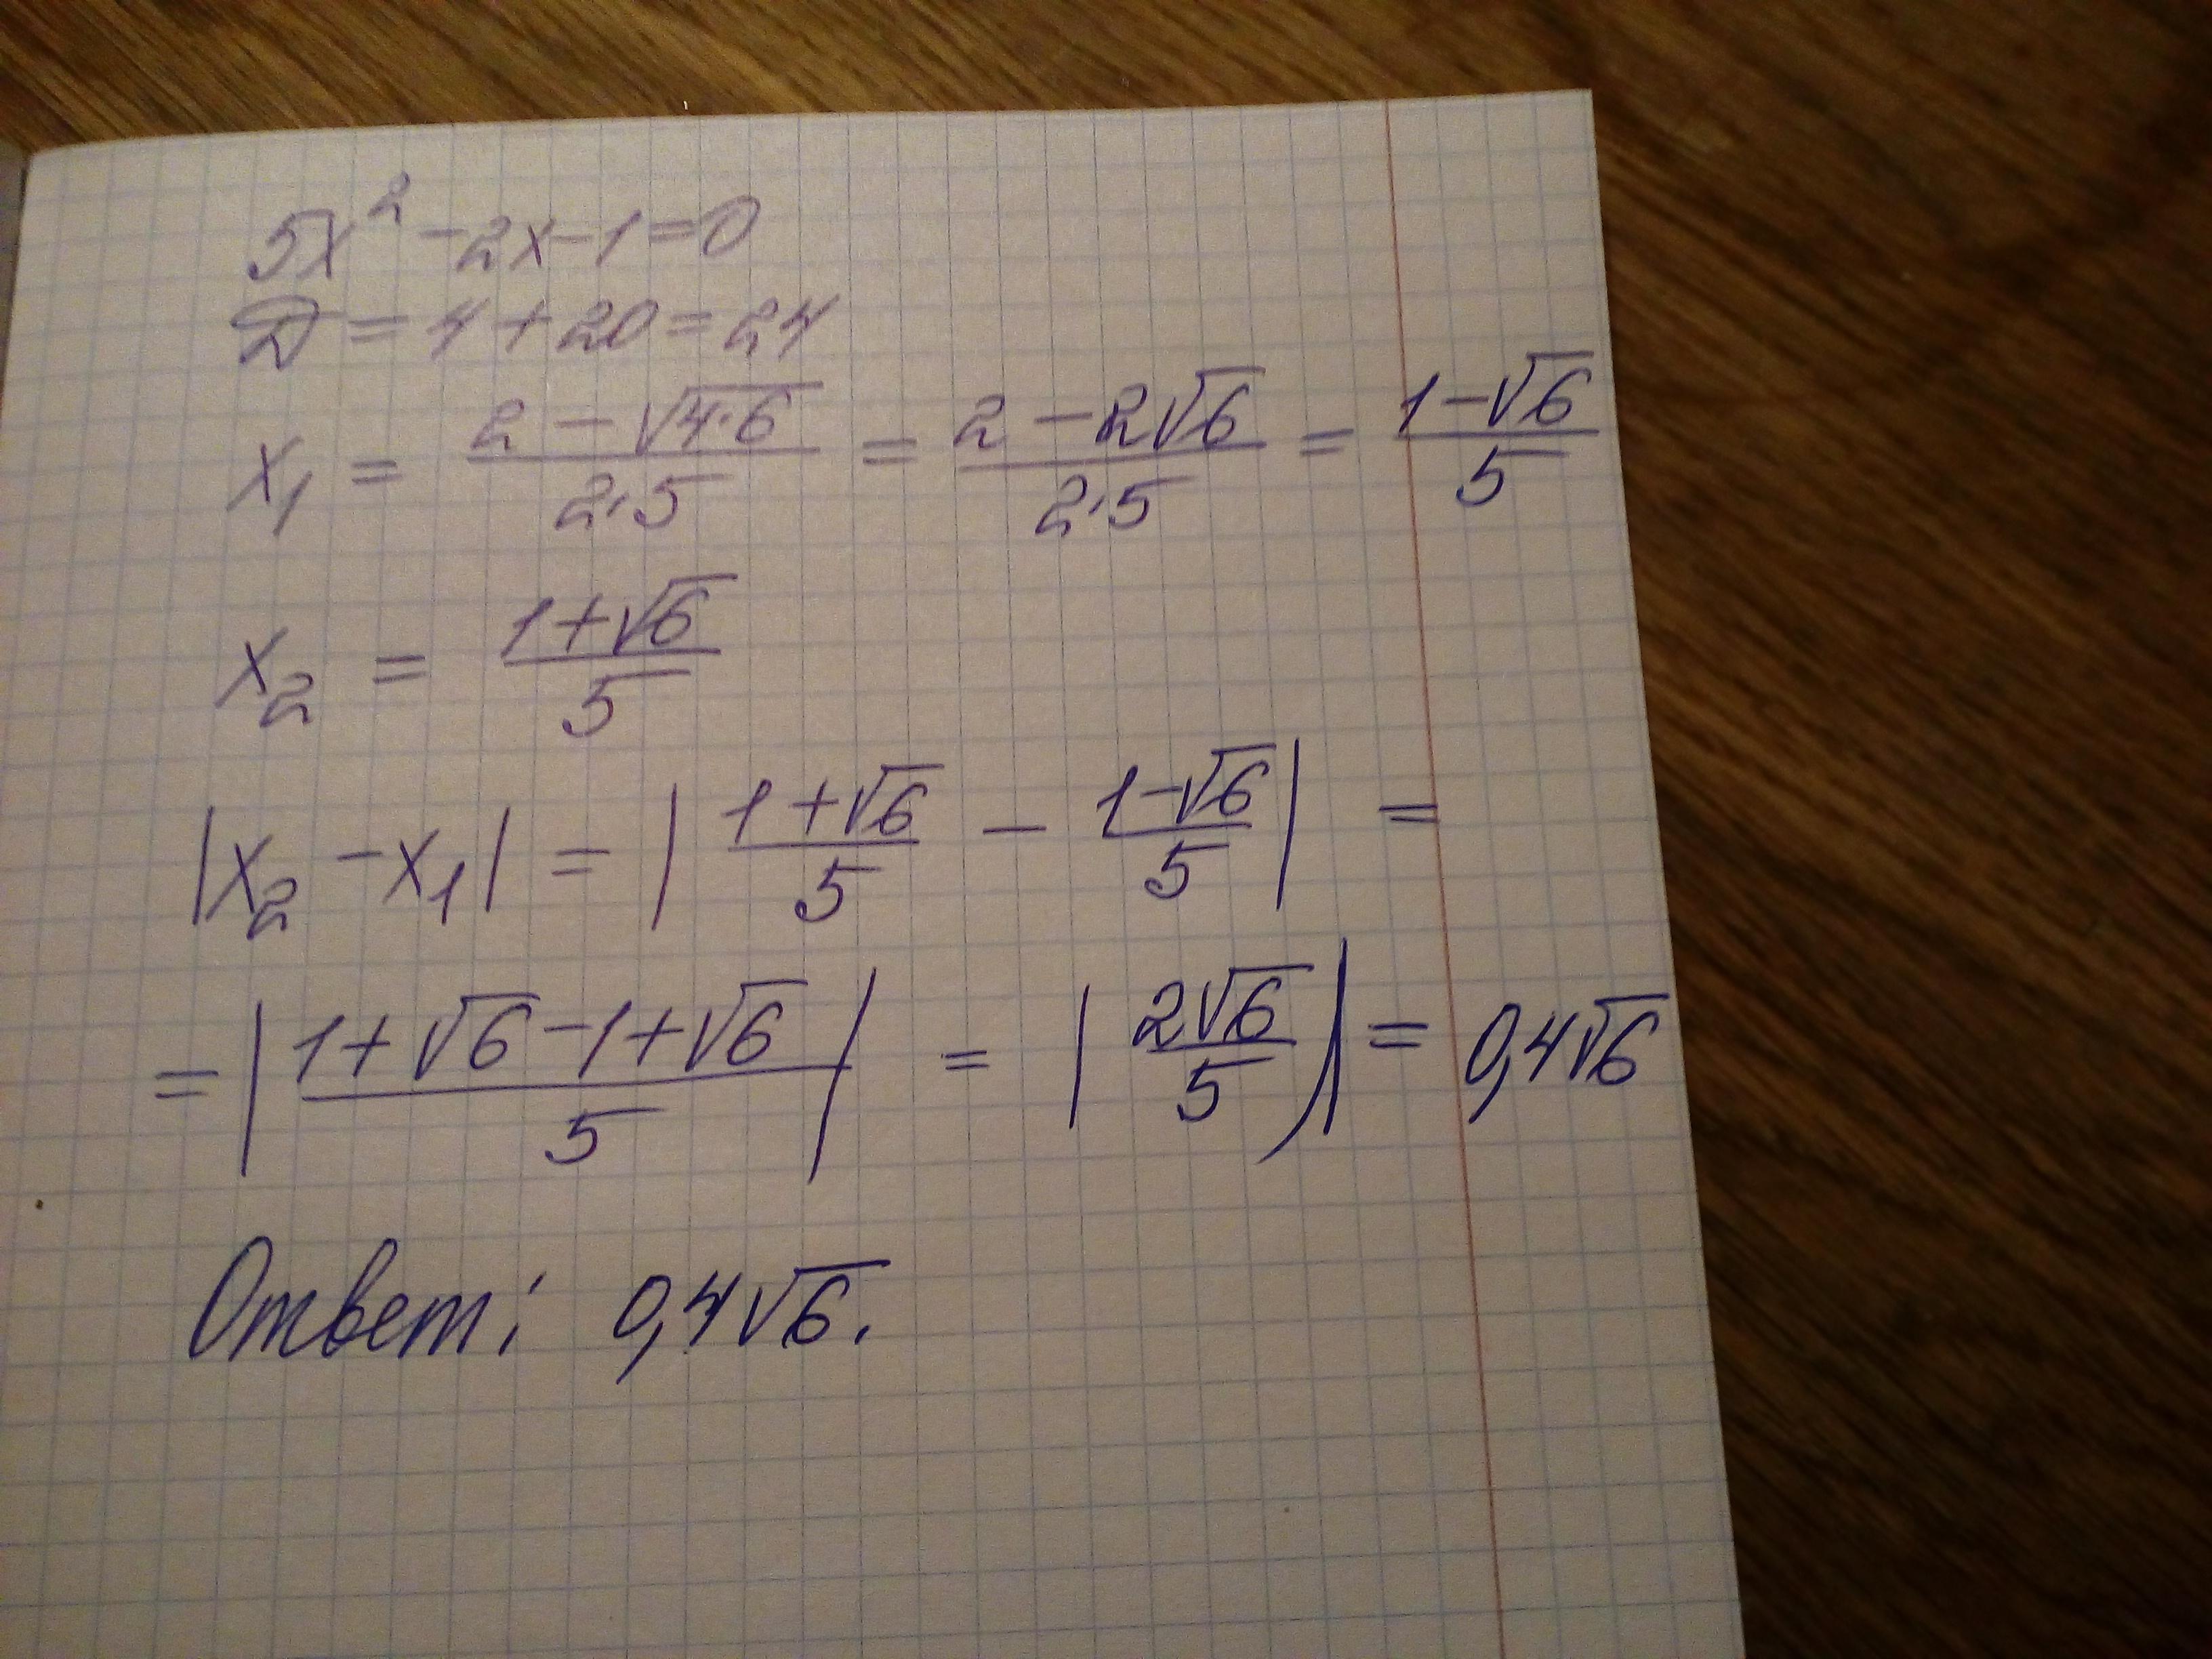 5x² - 2x - 1 = 0
D = 4 + 20 = 24
x₁ = (2 - √(4·6))/(2·5) = (2 - 2√6)/(2·5) = (1 - √6)/5
x₂ = (1 + √6)/5
|x₂ - x₁| = |(1 + √6)/5 - (1 - √6)/5| =
= |(1 + √6 - 1 + √6)/5| = |2√6/5| = 0,4√6
Ответ: 0,4√6.